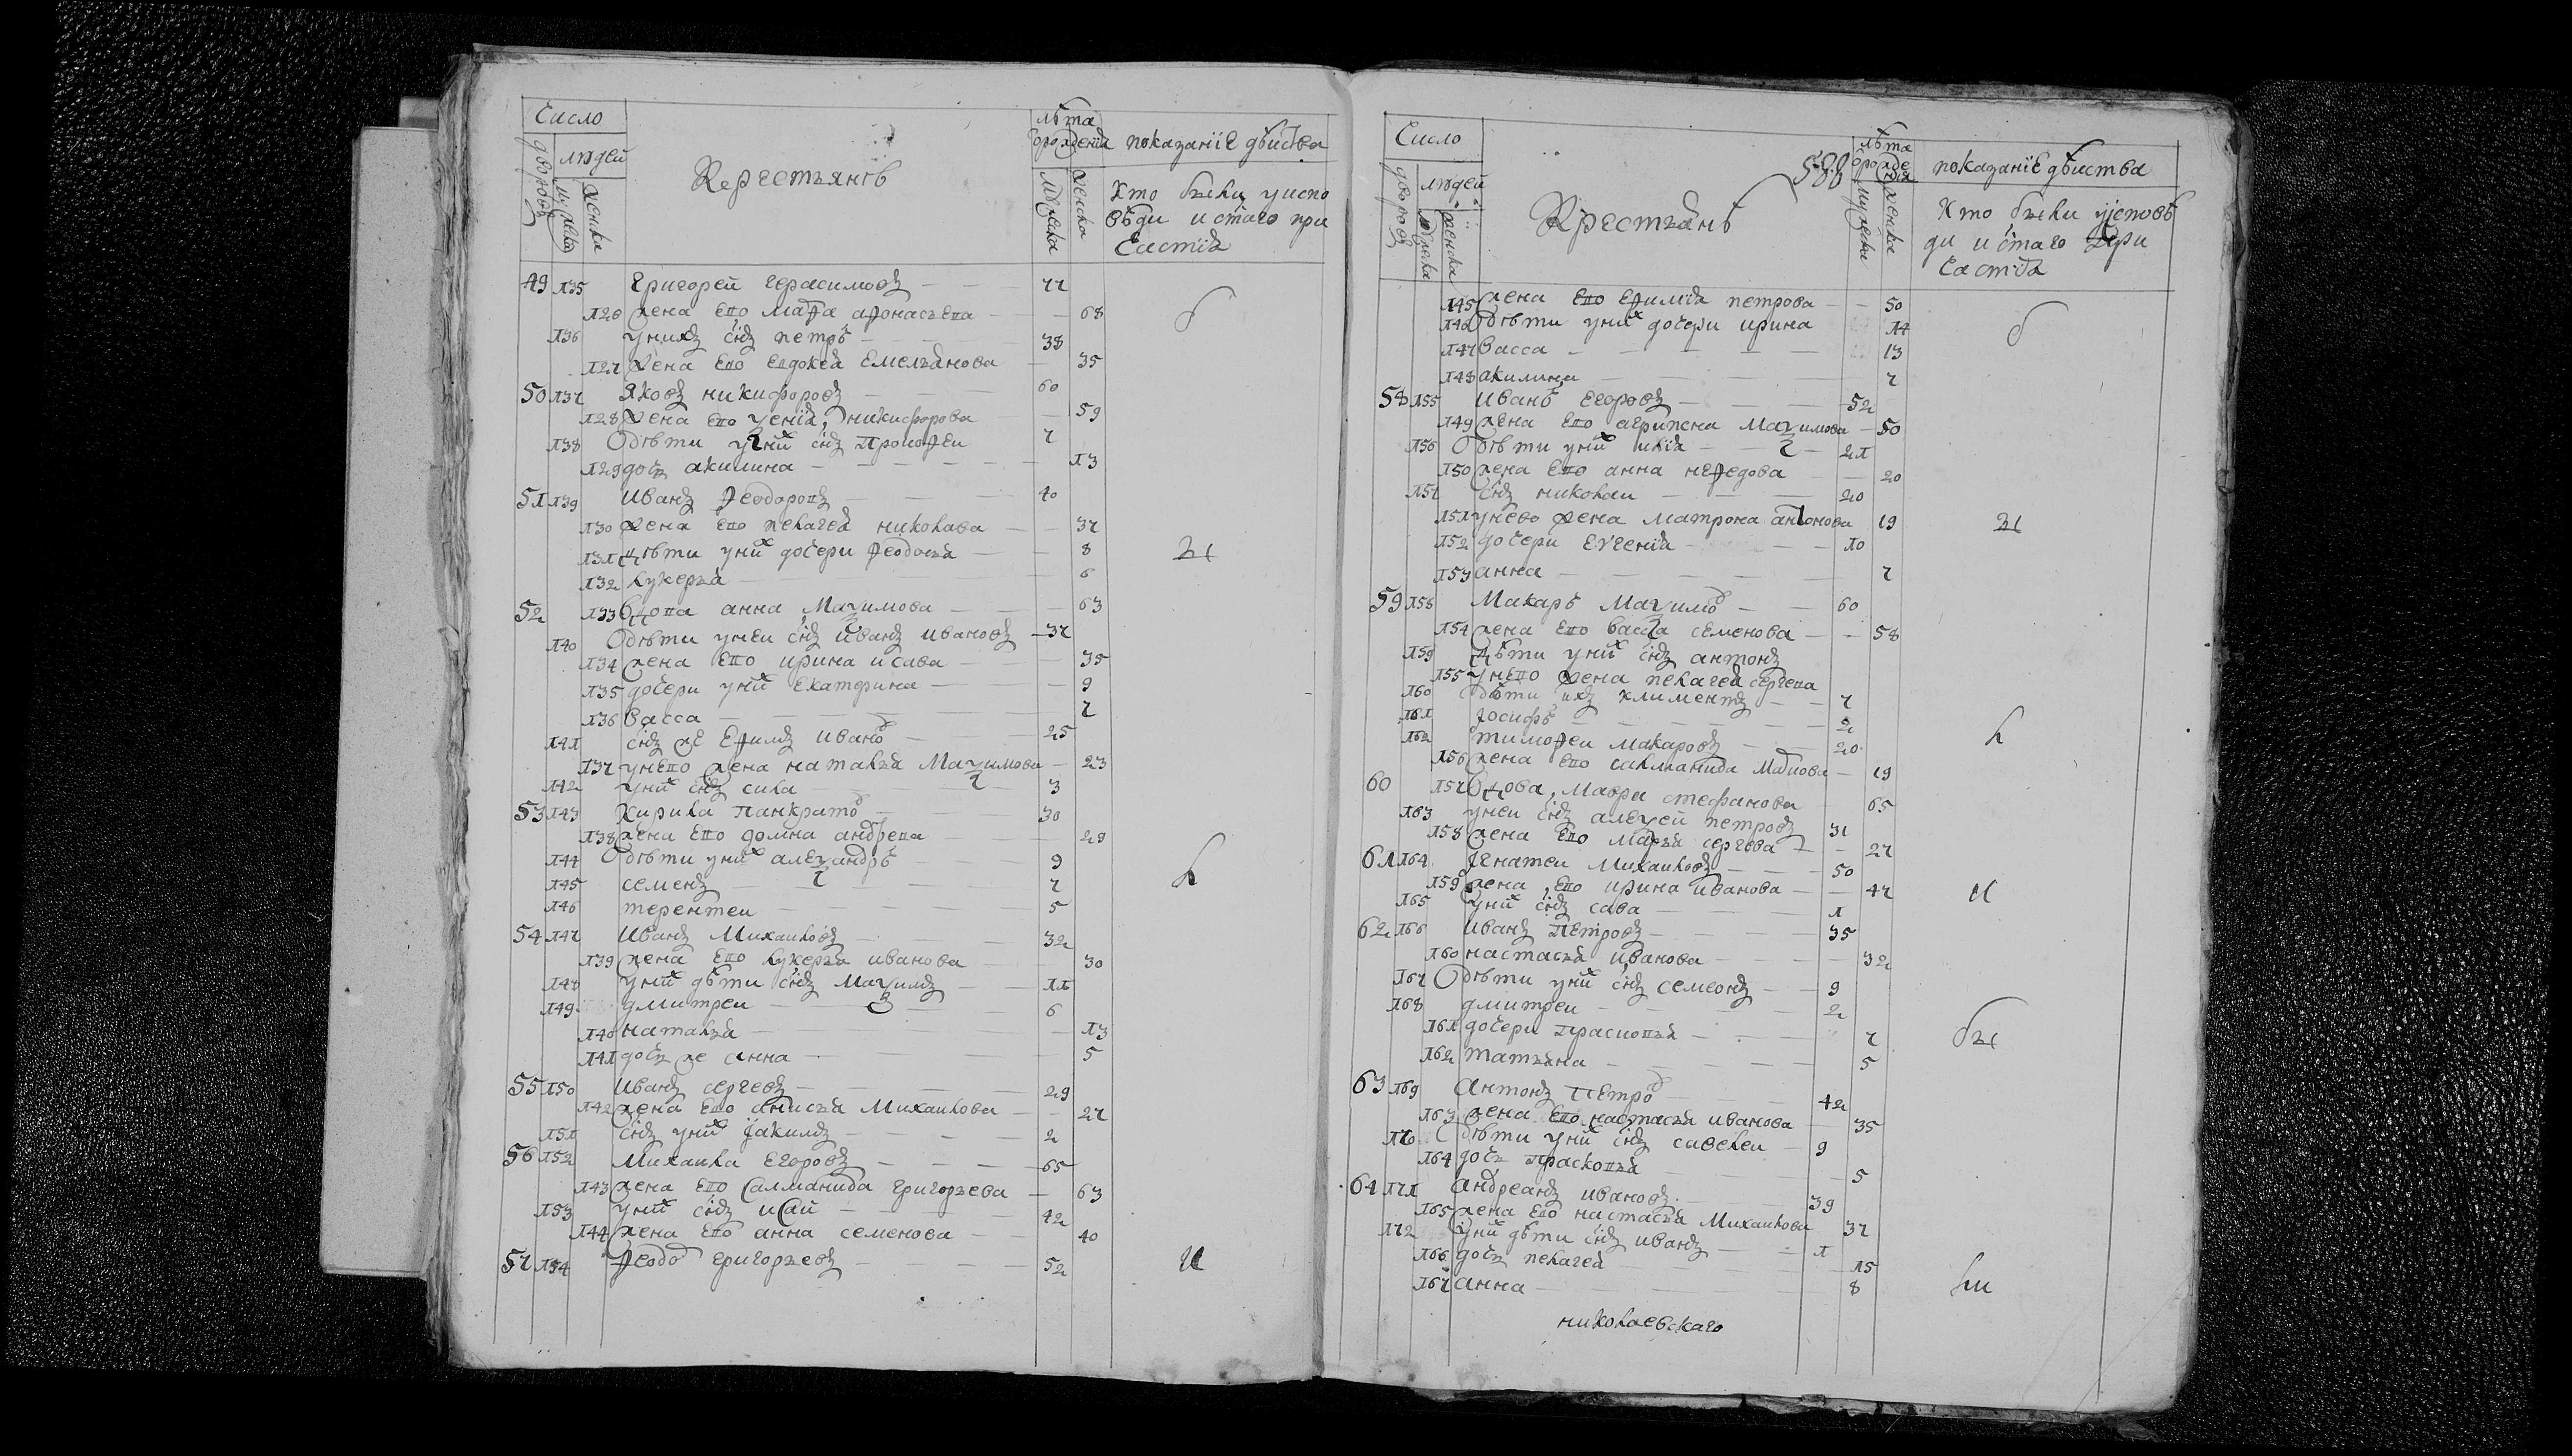 Число
людей
дворовъ
мужска
женска
Крестьянѣ
лѣта
рожденїа
мужска
женска
показанїе дѣиства
Кто былъ у испо
вѣди и стаго при
частїѧ
49 135 Григорей Герасимовъ 77
126 жена ево марѳа аѳонасьева 68
136 унихъ снъ петръ 38
127 жена ево евдокеѧ Емельѧнова 35
б
50 137 Яковъ никифоровъ 60
128 жена ево ѯенїѧ никифорова 59
138 дѣти у них снъ Прокоѳеи 7
129 дочь акилина 13
51 139 иванъ Ѳеодоровъ 40
130 жена ево пелагеѧ николава 37
131 дѣти у них дочери Ѳеодосьѧ 8
132 лукерьѧ 6
ы
52 133 вдова анна Маѯимова 63
140 дѣти у неи снъ иванъ ивановъ 37
134 жена ево ирина исава 35
135 дочери у них Екатерина 9
136 васса 7
141 снъ же Еѳимъ иванов 25
137 унево жена наталья Маѯимова 23
142 у них снъ сила 3
53 143 Кирила Панкратов 30
138 жена ево домна андрева 29
144 дѣти у них алеѯандръ 9
145 семенъ 7
146 терентеи 5
л
54 147 Иванъ Михаиловъ 32
139 жена ево лукерьѧ иванова 30
148 у них дѣти снъ Маѯимъ 11
149 дмитреи 6
140 натальѧ 13
141 дочь же анна 5
55 150 Иванъ сергевъ 29
142 жена ево анисьѧ Михаилова 27
151 снъ у них Іакимъ 2
56 152 Михаила Егоровъ 65
143 жена ево Салманида григорьева 63
153 у них снъ исаи 42
144 жена ево анна семенова 40
57 154 Ѳеодо григорьевъ 52
и
Число
людей
дворовъ
женска
Крестьѧнѣ
588
лѣта
рожде
нїѧ
мужска
женска
показанїе дѣиства
Кто былъ у исповѣ
ди и стаго при
частїѧ
145 жена ево Еѳимїѧ петрова 50
146 дѣти у них дочери ирина 14
147 васса 13
148 акилина 7
б
58 155 иванъ Егоровъ 52
149 жена ево агрипена Маѯимова 50
156 дѣти у них илїа 21
150 жена ево анна неѳедова 20
157 снъ николаи 20
151 унево жена матрона антонова 19
152 дочери Евгенїѧ 10
153 анна 7
ы
59 158 Макаръ Маѯимов 60
154 жена ево васса семенова 58
159 дѣти у них снъ антонъ
155 унево жена пелагеѧ сергева
160 дѣти ихъ климентъ 7
161 Іосифъ 2
162 тимоѳеи макаровъ 20
156 жена ево салманида 19
л
60 157 вдова Мавра стефанова 65
163 унеи снъ алеѯеи петровъ 31
158 жена ево Марьѧ сергева 27
61 164 Игнатеи Михаиловъ 50
159 жена ево ирина иванова 47
165 у них снъ сава 1
и
62 166 иванъ Петровъ 35
160 настасьѧ иванова 32
167 дѣти у них снъ семеонъ 9
168 дмитреи 2
161 дочери Прасковьѧ 7
162 татьѧна 5
бы
63 169 Антонъ Петров 42
163 жена ево настасьѧ иванова 35
170 дѣти у них снъ савелеи 9
164 дочь прасковьѧ 5
64 171 Андреанъ ивановъ 39
165 жена ево настасьѧ Михаилова 37
172 у них дѣти снъ иванъ 1
166 дочь пелагеѧ 15
167 анна 8
ли
николаевскаго